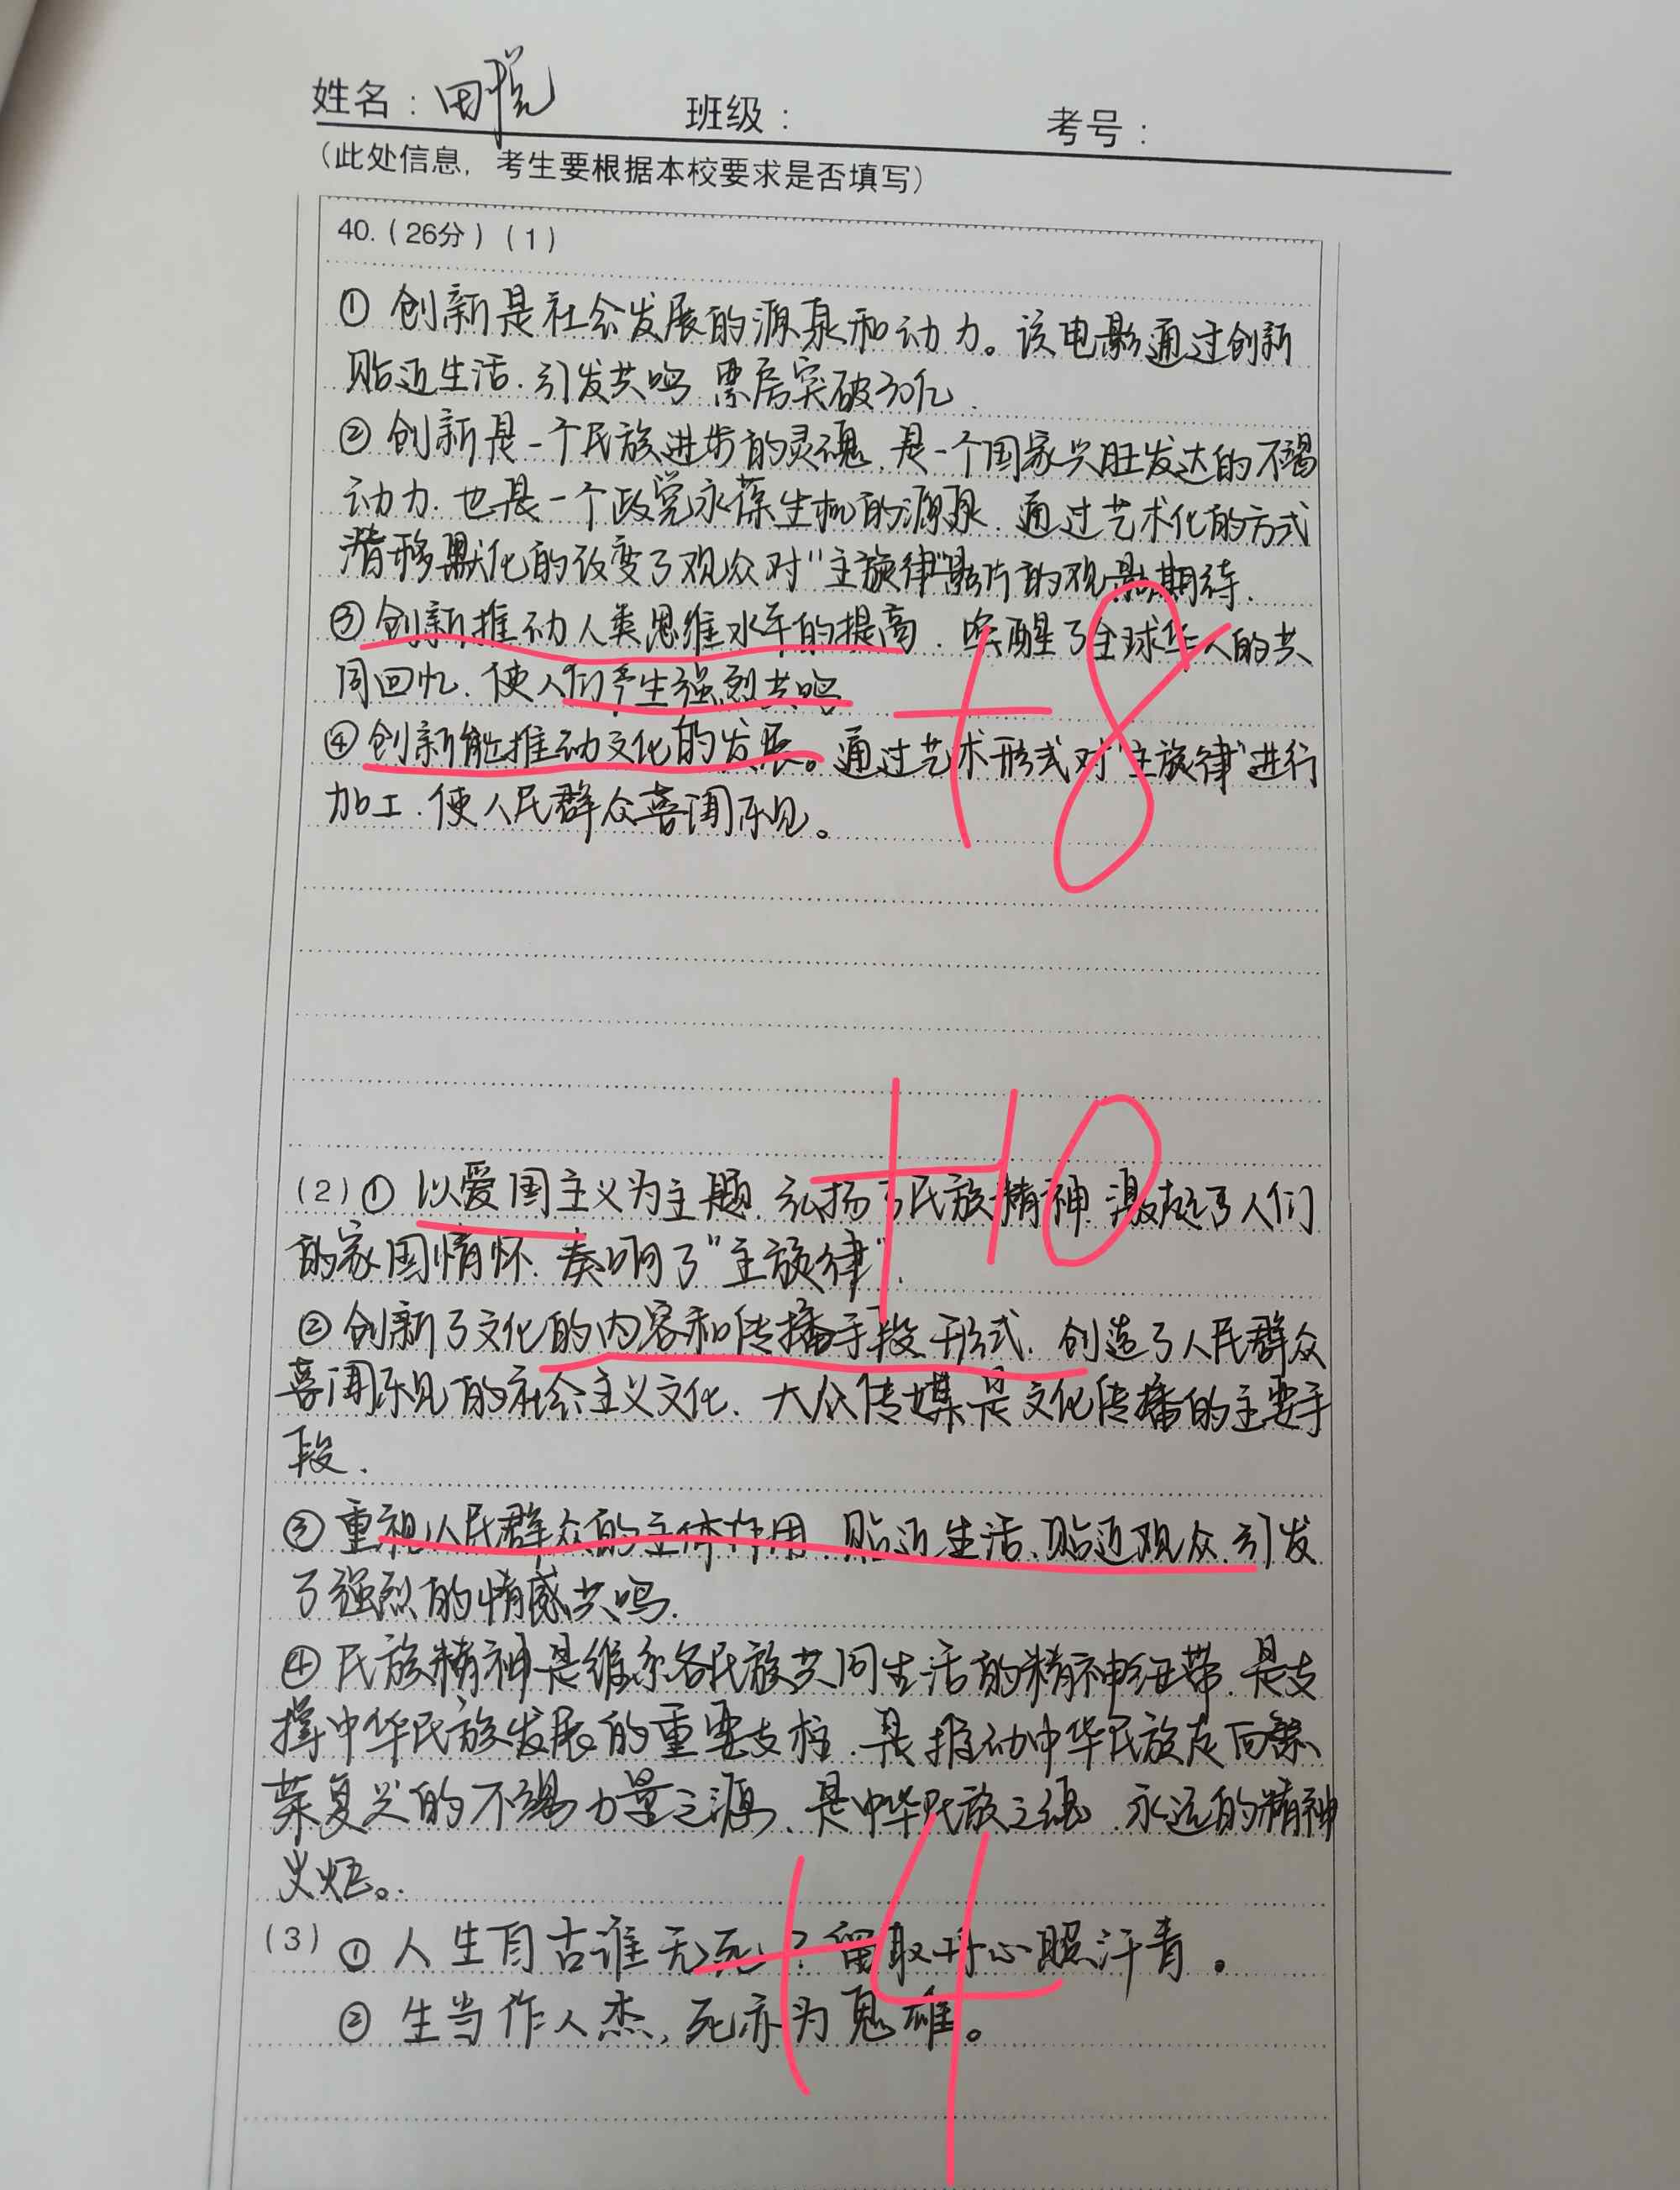 姓名：田悦 班级： 考号：
（此处信息，考生要根据本校要求是否填写）
40.（26分）（1）
① 创新是社会发展的源泉和动力。该电影通过创新
贴近生活.引发共鸣 票房突破30亿.
② 创新是一个民族进步的灵魂.是一个国家兴旺发达的不竭
动力.也是一个政党永葆生机的源泉.通过艺术化的方式
潜移默化的改变了观众对"主旋律"影片的观影期待.
③ 创新推动人类思维水平的提高.唤醒了全球华人的共
同回忆.使人们产生强烈共鸣
④ 创新能推动文化的发展。通过艺术形式对"主旋律"进行
加工.使人民群众喜闻乐见。
+8
+10
（2）① 以爱国主义为主题.弘扬了民族精神.激起了人们
的家国情怀.奏响了"主旋律".
② 创新了文化的内容和传播手段形式.创造了人民群众
喜闻乐见的社会主义文化.大众传媒是文化传播的主要手
段.
③ 重视人民群众的主体作用.贴近生活、贴近观众.引发
了强烈的情感共鸣.
④ 民族精神是维系各民族共同生活的精神纽带.是支
撑中华民族发展的重要支柱.是推动中华民族走向繁
荣复兴的不竭力量之源、是中华民族之魂.永远的精神
火炬。
（3）① 人生自古谁无死？留取丹心照汗青。
② 生当作人杰，死亦为鬼雄。
+4